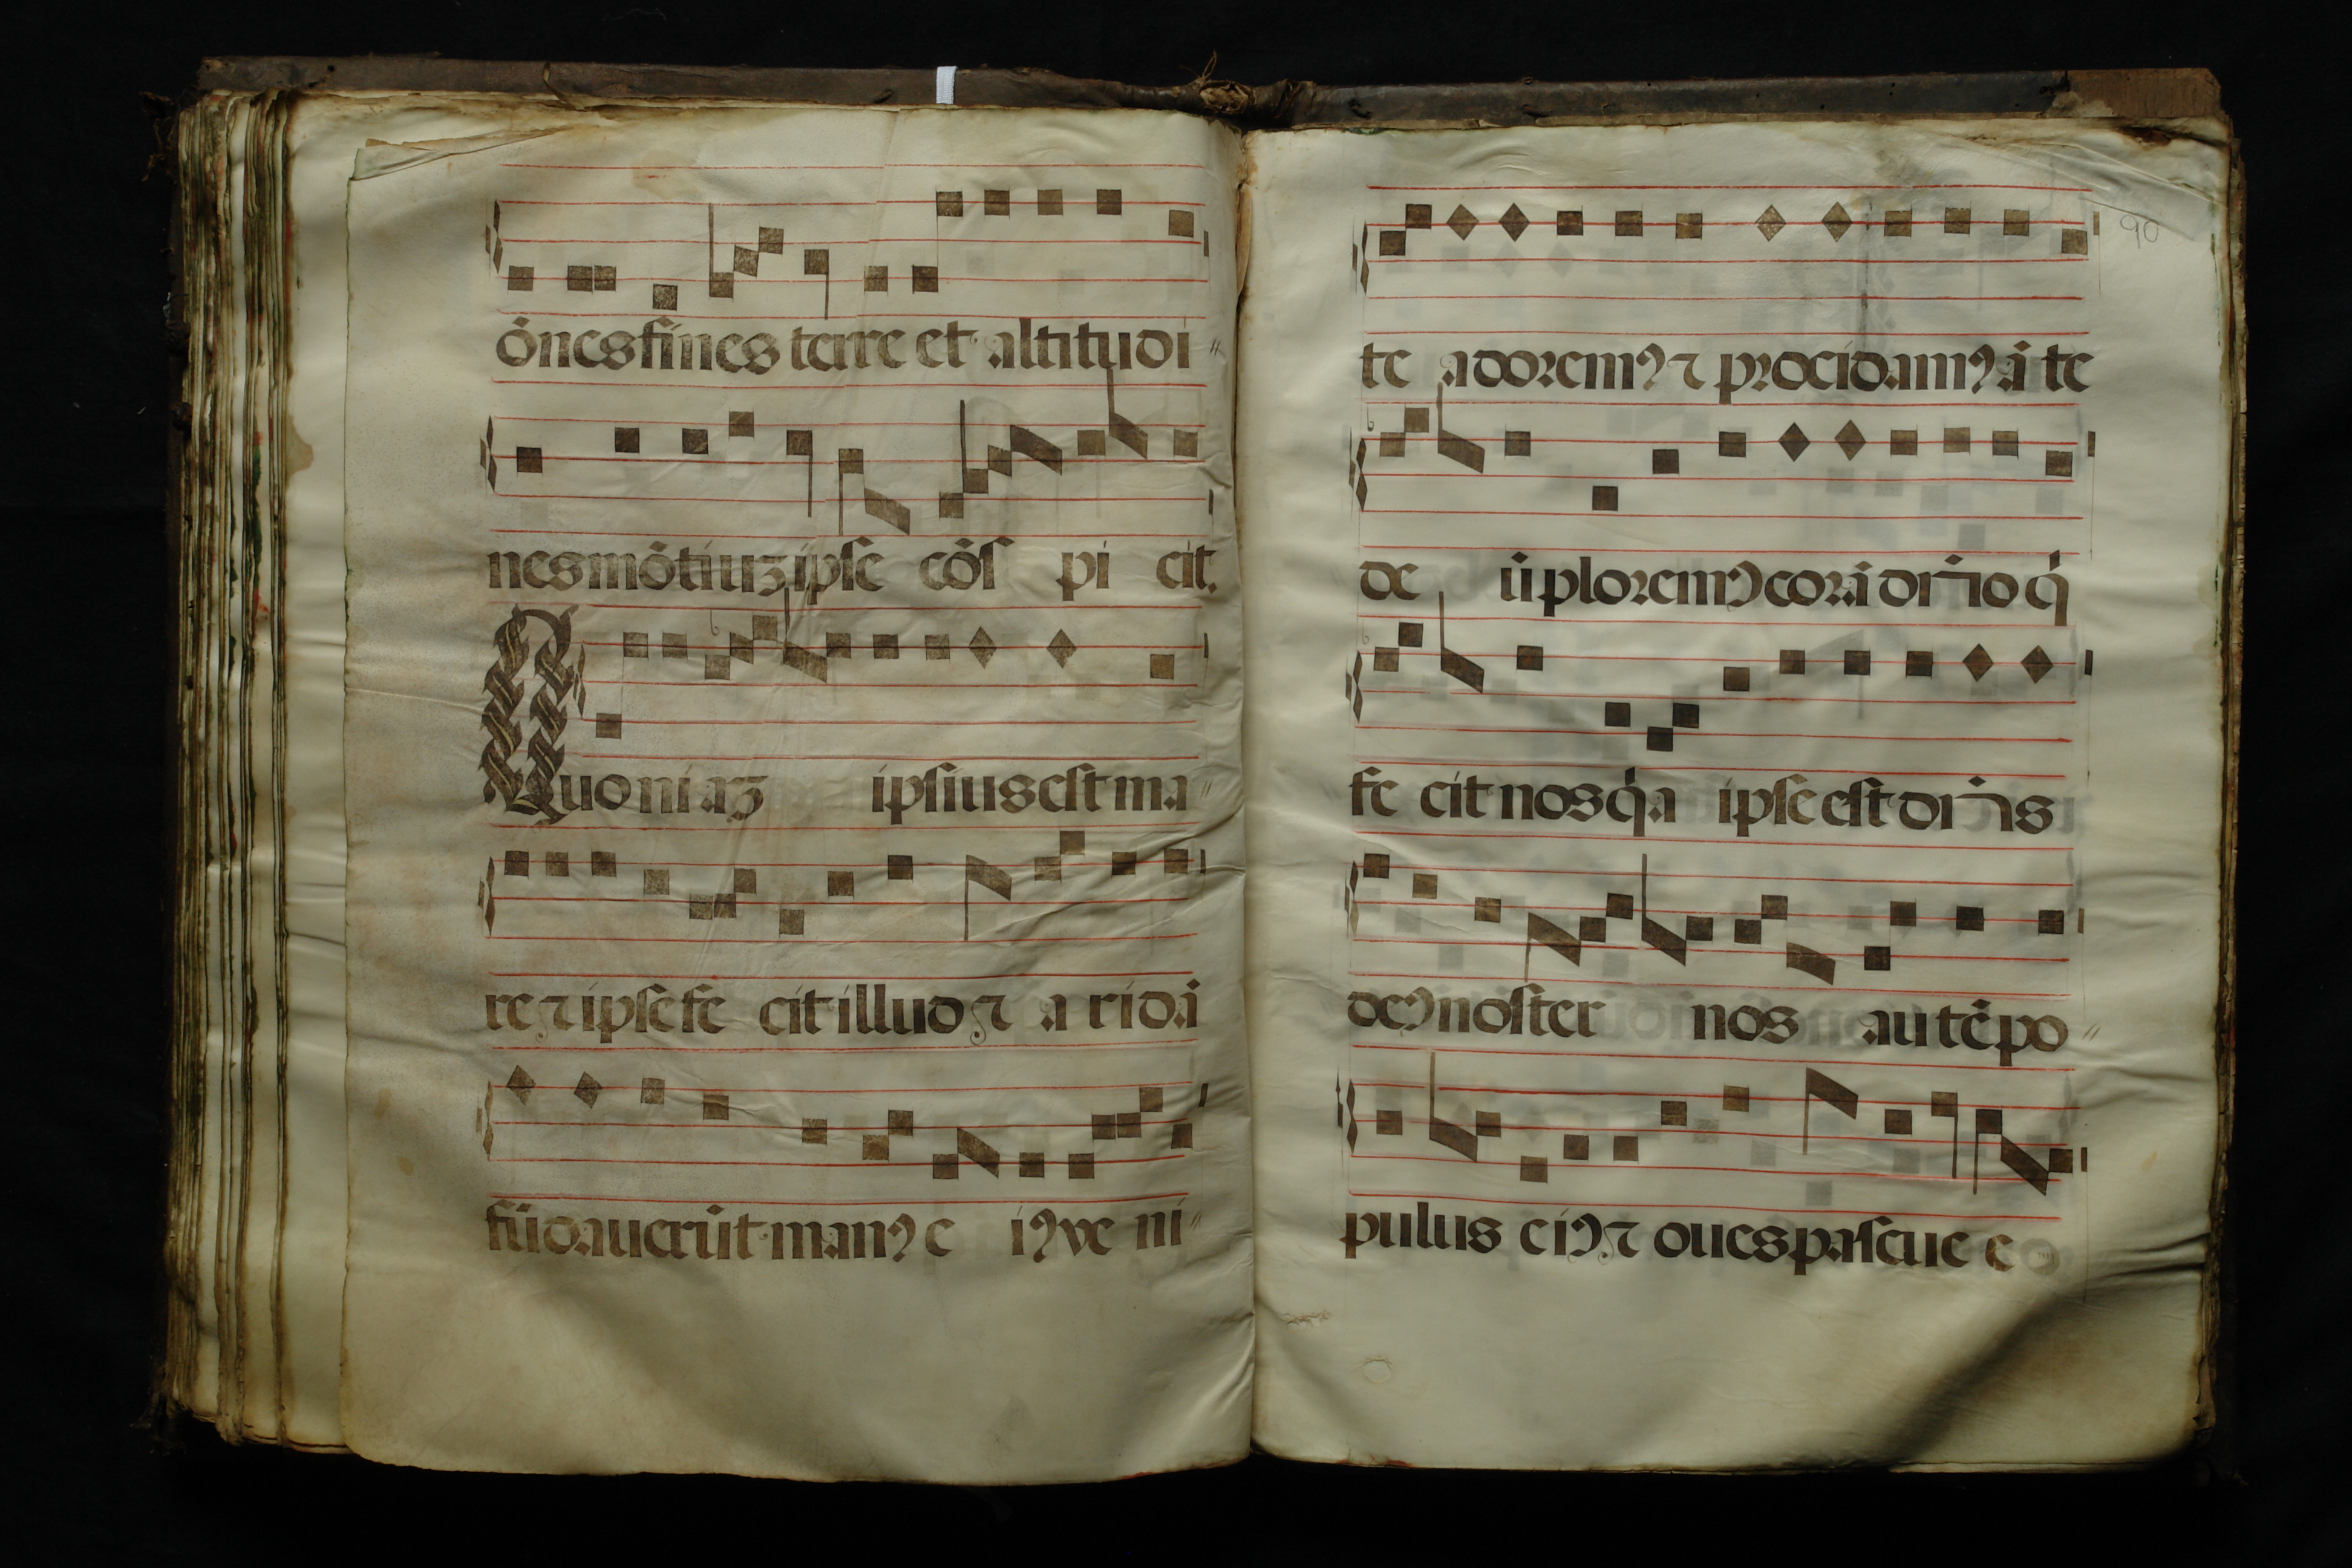 õnes fines terre et altitudi〃
nes mõtiuȝ ipſe cõſ pi cit.
Quoniaȝ ipſius eſt ma〃
re ⁊ ipſe fe cit illud ⁊ a ridã
fũdauerũt manꝰ e iꝰ ve ni〃
90
te adoremꝰ ⁊ procidamꝰ ã te
de ũ ploremꝰ corã dñio q̇
fe cit nos q̇a ipſe eſt dñs
deꝰ noſter nos autẽ po〃
pulus eiꝰ ⁊ oues paſcue e